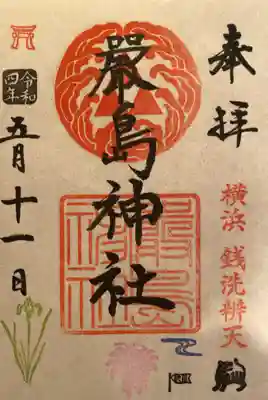 奉拝
横浜 銭洗弁天
嚴島神社
嚴島神社
令和
四年
五月十一日